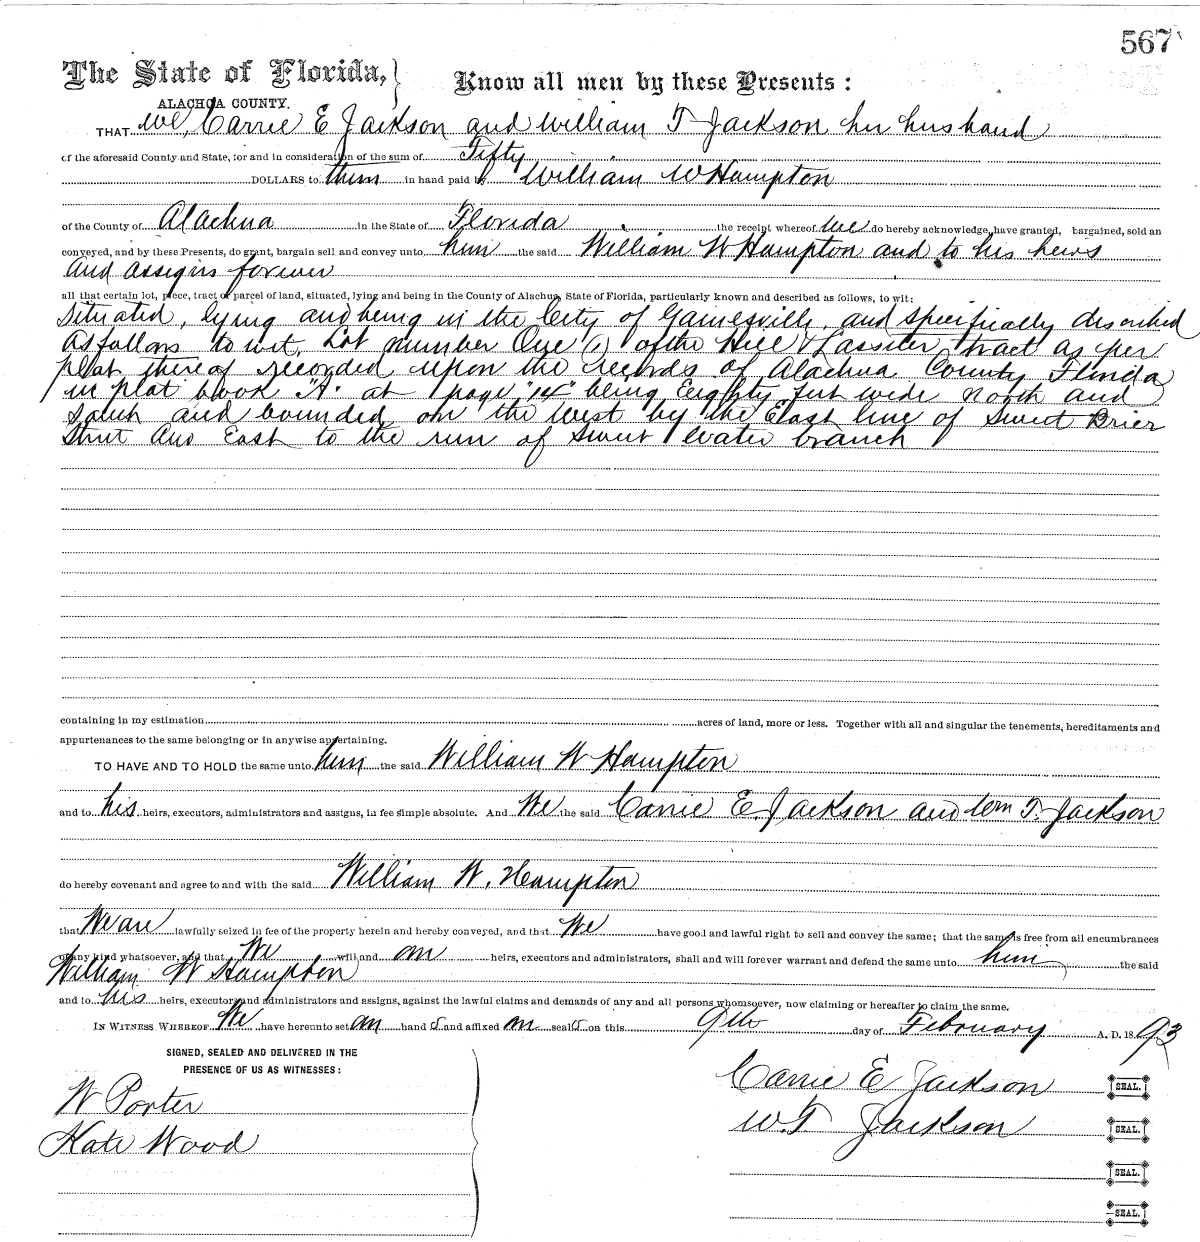 567
The State of Florida,} Know all men by these Presents:
ALACHUA COUNTY.
THAT we, Carrie E Jackson and William T Jackson her husband
of the aforesaid County and State, for and in consideration of the sum of Fifty
DOLLARS to them in hand paid by William W Hampton
of the County of Alachua in the State of Florida the receipt whereof we do hereby acknowledge, have granted, bargained, sold an
conveyed, and by these Presents, do grant, bargain sell and convey unto him the said William W Hampton and to his heirs
and assigns forever
all that certain lot, piece, tract or parcel of land, situated, lying and being in the County of Alachua, State of Florida, particularly known and described as follows, to wit:
Situated, lying and being in the City of Gainesville, and specifically described
as follows to wit, Lot number One (1) of the Hill & Lassiter tract as per
plat thereof recorded upon the records of Alachua County Florida
in plat book "A" at page "14" being Eighty feet wide north and
South and bounded on the west by the East line of Sweet Brier
Street and East to the run of Sweet Water branch
containing in my estimation acres of land, more or less. Together with all and singular the tenements, hereditaments and
appurtenances to the same belonging or in anywise appertaining.
TO HAVE AND TO HOLD the same unto him the said William W Hampton
and to his heirs, executors, administrators and assigns, in fee simple absolute. And We the said Carrie E. Jackson and Wm T. Jackson
do hereby covenant and agree to and with the said William W. Hampton
that We are lawfully seized in fee of the property herein and hereby conveyed, and that We have good and lawful right to sell and convey the same; that the same is free from all encumbrances
of any kind whatsoever, and that We will and our heirs, executors and administrators, shall and will forever warrant and defend the same unto him the said
William W Hampton
and to his heirs, executors and administrators and assigns, against the lawful claims and demands of any and all persons whomsoever, now claiming or hereafter to claim the same.
IN WITNESS WHEREOF We have hereunto set our hand s and affixed our seal s on this 9th day of February A. D. 1893
SIGNED, SEALED AND DELIVERED IN THE
PRESENCE OF US AS WITNESSES:
W Porter
Kate Wood
Carrie E Jackson SEAL.
W.T. Jackson SEAL.
SEAL.
SEAL.